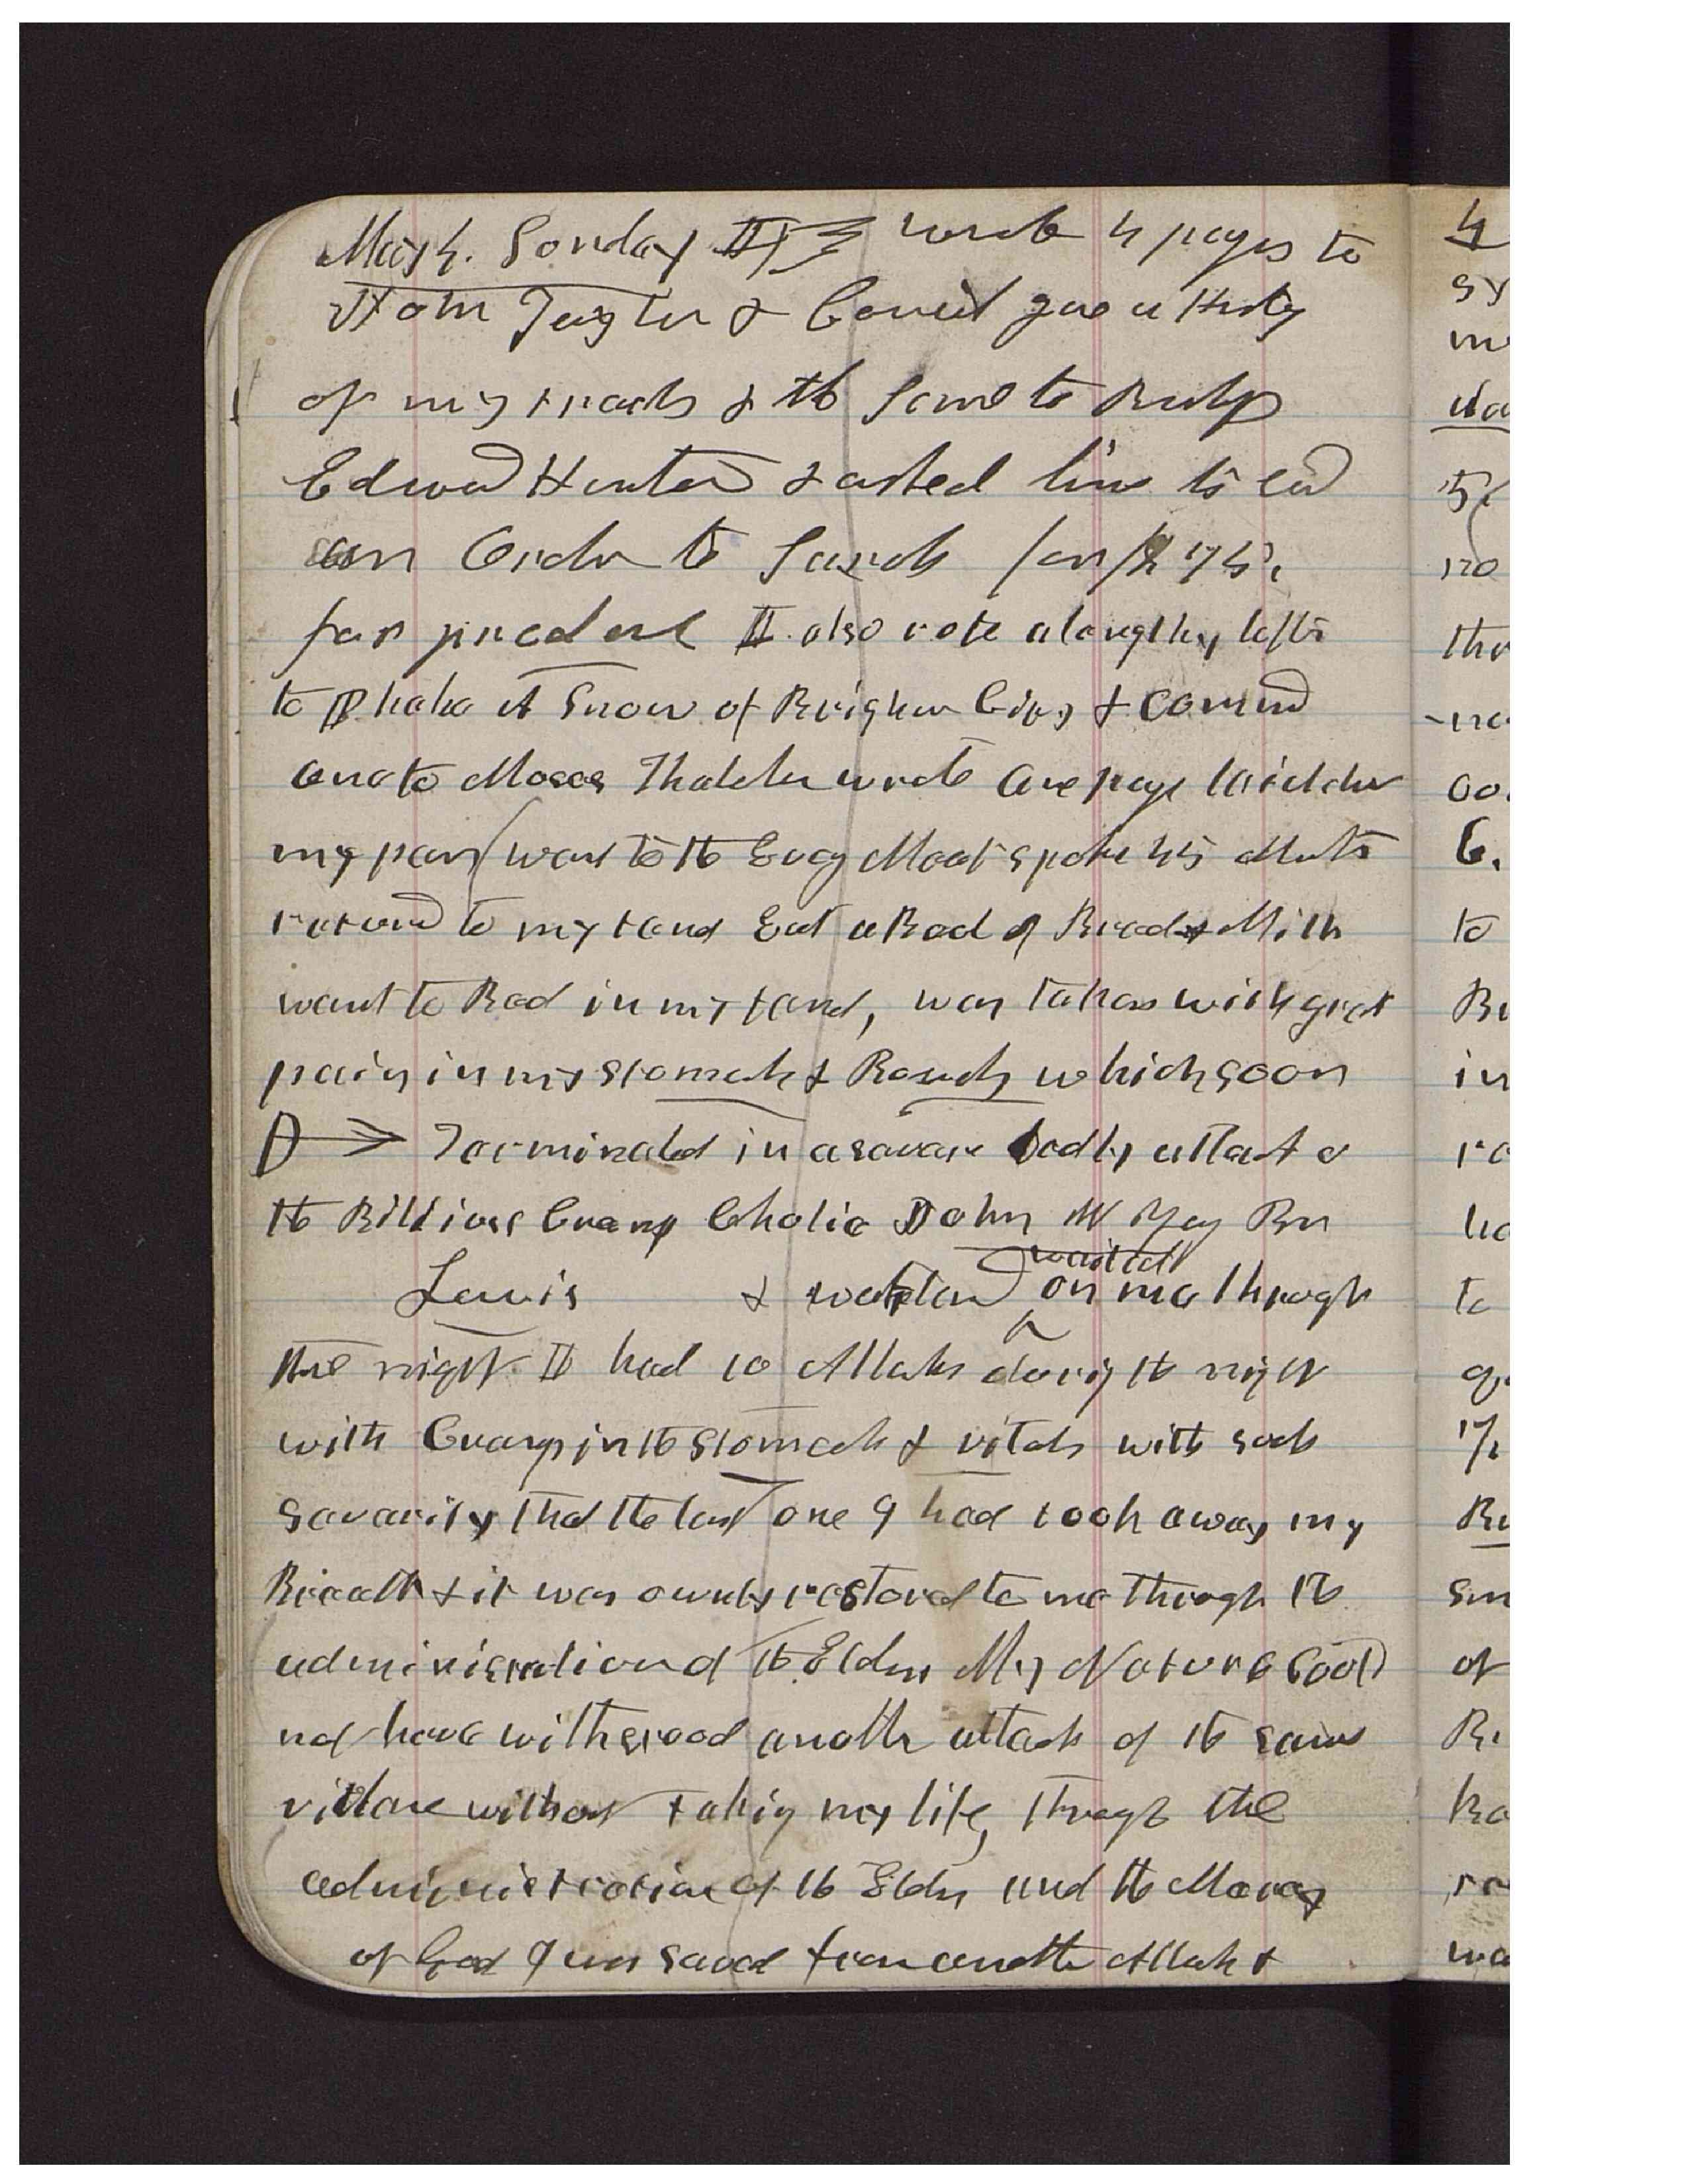 May 4. Sunday I wrote 4 pages to
John Taylor & Council gave a History
of my travels & the same to Bishp
Edward Hunter & asked him to send
an Order to Sarah for $75,
for produce I also rote a lengthy lettr
to Phebe A Snow of Brigham City & comend
one to Moses Thatcher wrote one page laid down
my pen went to the Evng Meet spoke 45 Mnts
returnd to my tend Eat a Boal of Bread & Milk
went to Bed in my tend, was taken with great
pain in my stomach & Bowels which soon
Terminated in a savare bodly attact of
the Billious Cramp Cholic John W Yong Bro
Lewis & waited on me through
the night I had 10 Attaks during the night
with Cramp in the stomach & vitals with such
savarity that the last one I had took away my
Breath & it was ownly restored to me through the
administration of the Elders My Nature Could
not have withstood another attack of the same
vilence without taking my life, through the
administration of the Elders and the Mercy
of God I was saved from another Attack &
4
to
in
to
of